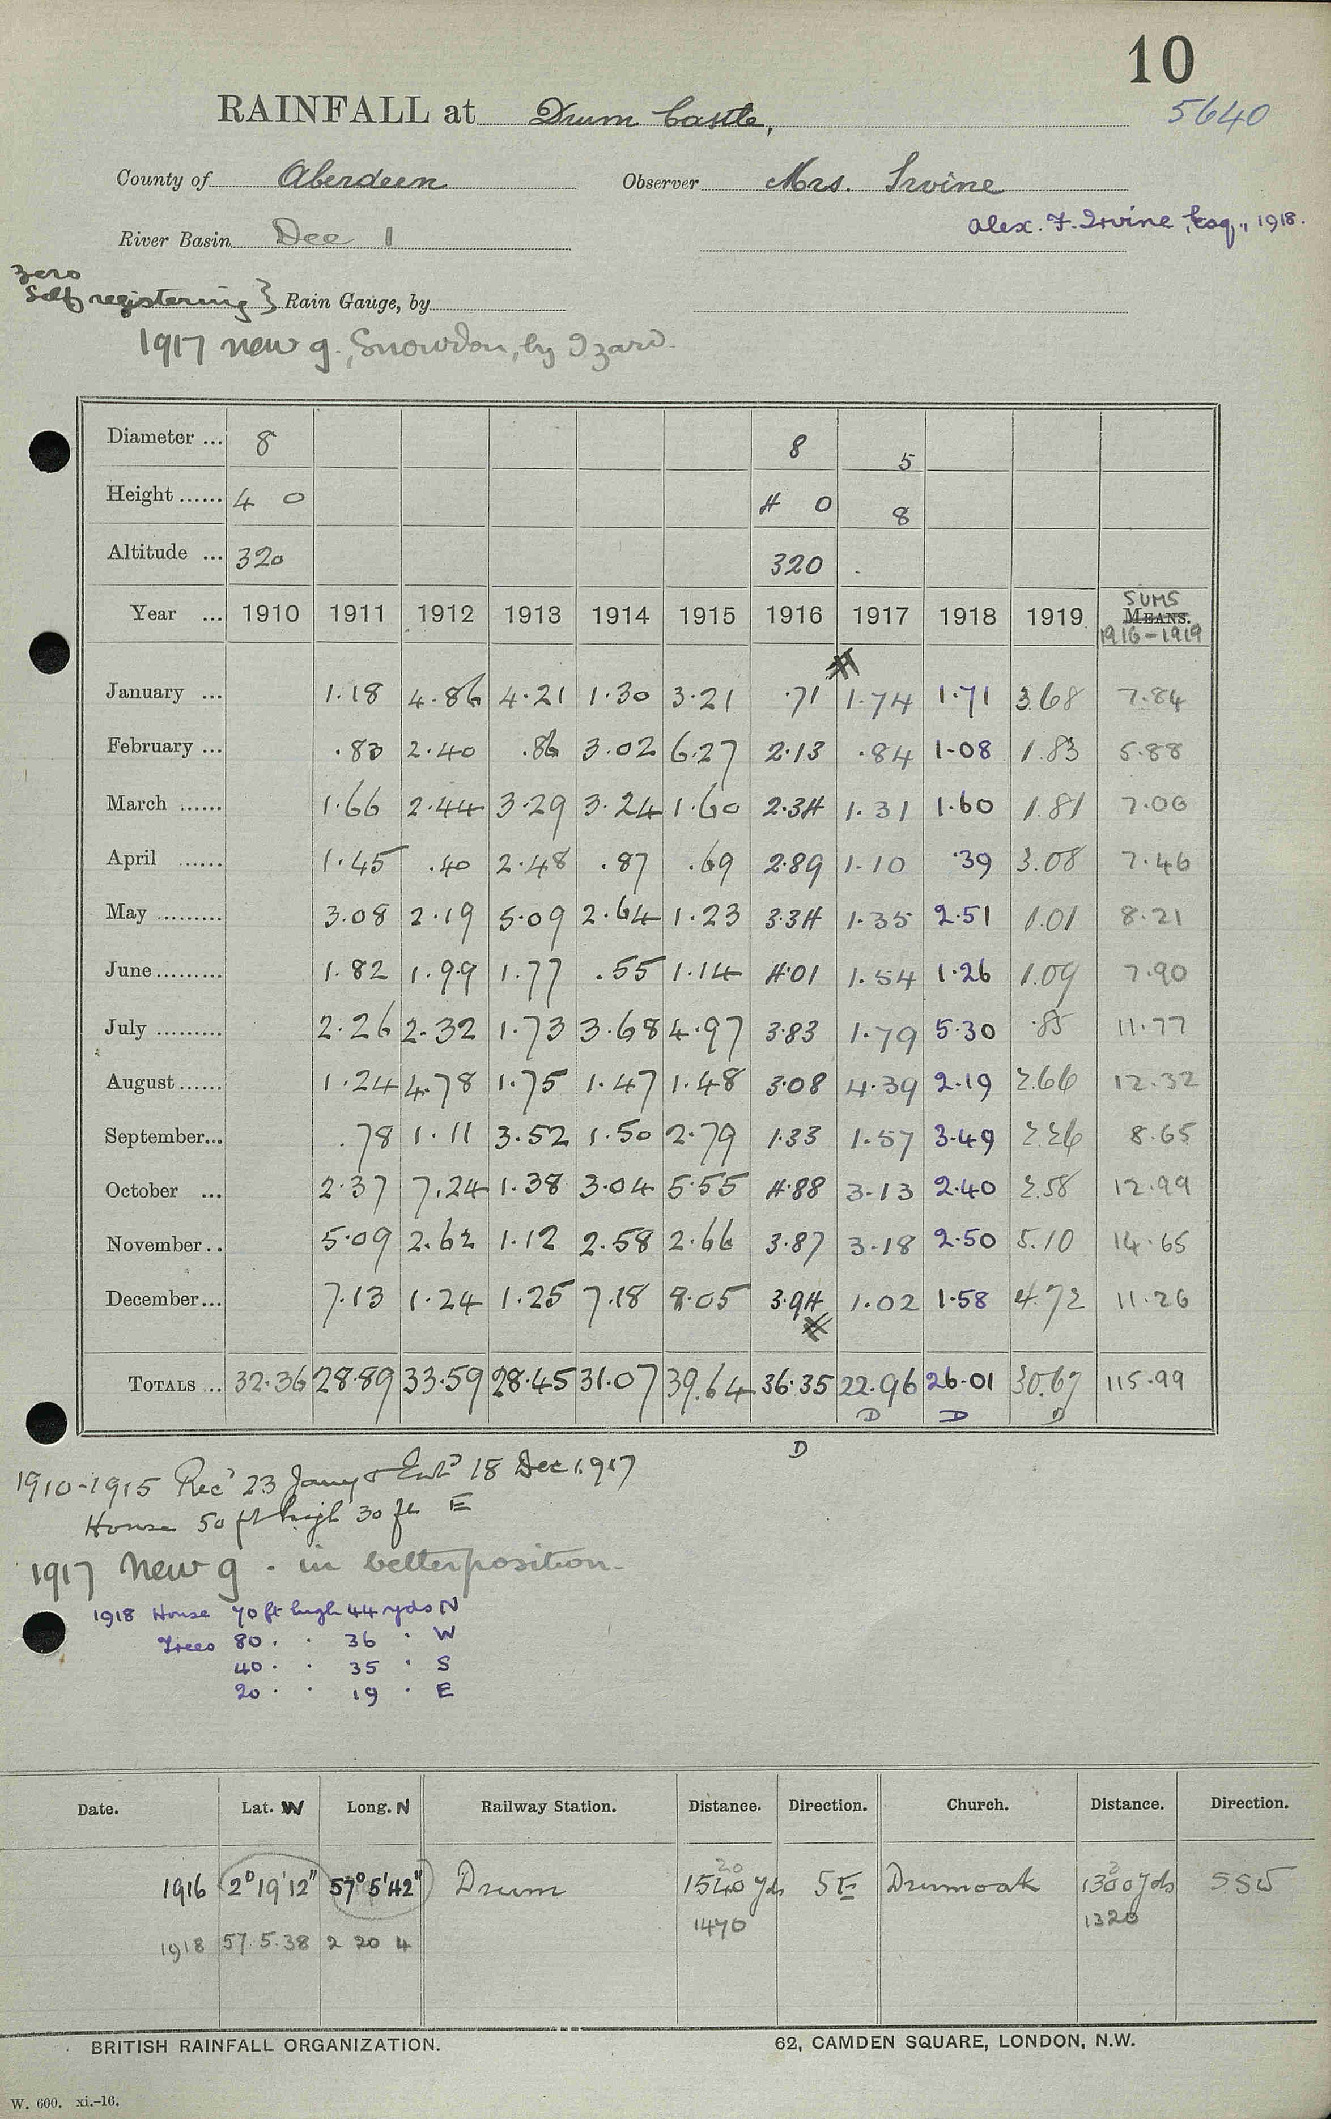 10
RAINFALL at Drum Castle, 5640
County of Aberdeen Observer Mrs. Irvine
Alex. F. Irvine, Esq., 1918.
River Basin Dee 1
zero
Self registering } Rain Gauge, by
1917 new g., Snowdon, by Izard.
Diameter ... 8 8 5
Height ...... 4 0 4 0 8
Altitude ... 320 320 .
Year ... 1910 1911 1912 1913 1914 1915 1916 1917 1918 1919 SUMS MEANS. 1916-1919
January ... 1.18 4.86 4.21 1.30 3.21 .71 1.74 1.71 3.68 7.84
February ... .83 2.40 .86 3.02 6.27 2.13 .84 1.08 1.83 5.88
March ...... 1.66 2.44 3.29 3.24 1.60 2.34 1.31 1.60 1.81 7.06
April ...... 1.45 .40 2.48 .87 .69 2.89 1.10 .39 3.08 7.46
May ......... 3.08 2.19 5.09 2.64 1.23 3.34 1.35 2.51 1.01 8.21
June ......... 1.82 1.99 1.77 .55 1.14 4.01 1.54 1.26 1.09 7.90
July ......... 2.26 2.32 1.73 3.68 4.97 3.83 1.79 5.30 .85 11.77
August ...... 1.24 4.78 1.75 1.47 1.48 3.08 4.39 2.19 2.66 12.32
September... .78 1.11 3.52 1.50 2.79 1.33 1.57 3.49 2.26 8.65
October ... 2.37 7.24 1.38 3.04 5.55 4.88 3.13 2.40 2.58 12.99
November .. 5.09 2.62 1.12 2.58 2.66 3.87 3.18 2.50 5.10 14.65
December ... 7.13 1.24 1.25 7.18 8.05 3.94 1.02 1.58 4.72 11.26
TOTALS ... 32.36 28.89 33.59 28.45 31.07 39.64 36.35 22.96 26.01 30.67 115.99
D D D
D
1910-1915 Recd 23 Jany & Entd 18 Dec 1917
House 50 ft high 30 ft E
1917 New g. in better position.
1918 House 70 ft high 44 yds N
Trees 80 . . 36 . W
40 . . 35 . S
20 . . 19 . E
Date. Lat. W Long. N Railway Station. Distance. Direction. Church. Distance. Direction.
1916 2° 19' 12" 57° 5' 42" Drum 1540 yds SE Drumoak 1300 yds SSW
1470 1320
1918 57.5.38 2 20 4
BRITISH RAINFALL ORGANIZATION. 62, CAMDEN SQUARE, LONDON, N.W.
W. 600. xi.-16.